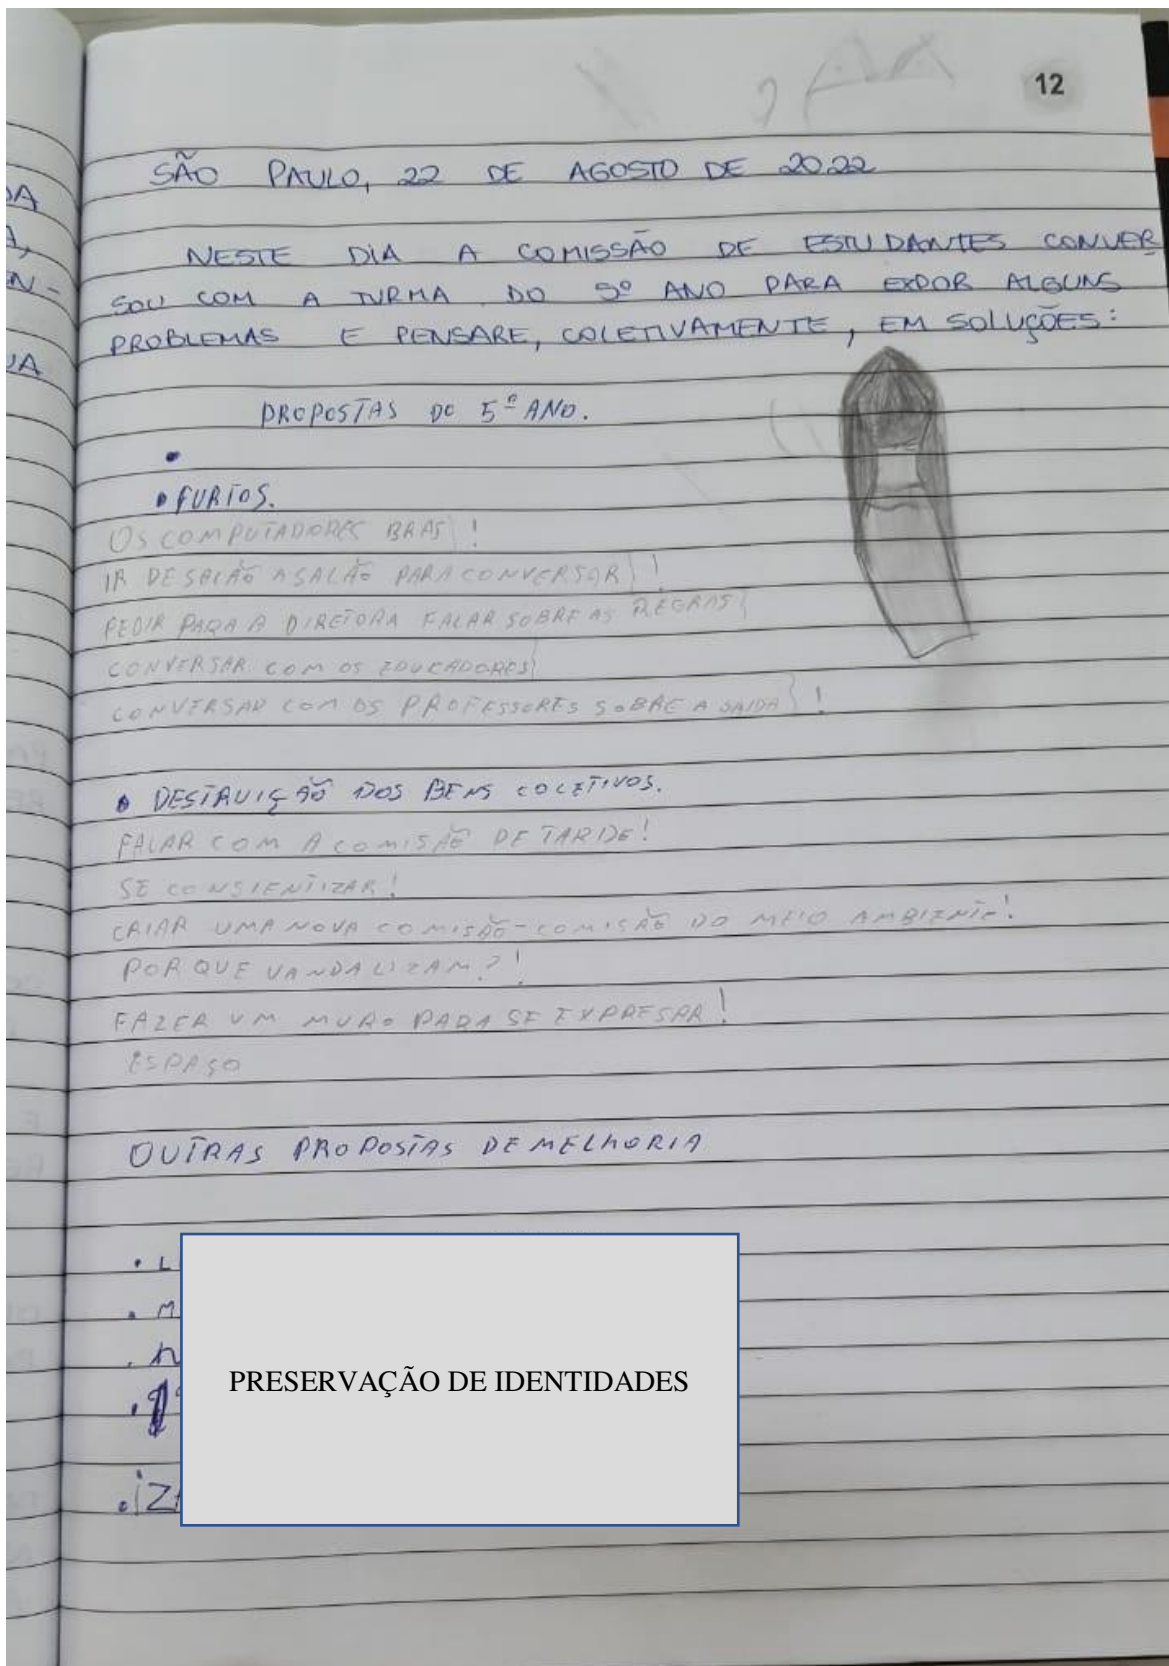 12
SÃO PAULO, 22 DE AGOSTO DE 2022
NESTE DIA A COMISSÃO DE ESTUDANTES CONVER
SOU COM A TURMA DO 5º ANO PARA EXPOR ALGUNS
PROBLEMAS E PENSARE, COLETIVAMENTE, EM SOLUÇÕES:
PROPOSTAS DO 5º ANO.
• FURTOS.
OS COMPUTADORES !
IR DE SALÃO A SALÃO PARA CONVERSAR !
PEDIR PARA A DIRETORA FALAR SOBRE AS REGRAS
CONVERSAR COM OS EDUCADORES
CONVERSAR COM OS PROFESSORES SOBRE A SAIDA !
• DESTRUIÇÃO DOS BENS COLETIVOS.
FALAR COM A COMISÃO DE TARDE!
SE CONSIENTIZAR!
CRIAR UMA NOVA COMISÃO-COMISÃO DO MEIO AMBIENTE!
POR QUE VANDALIZAM?!
FAZER UM MURO PARA SE EXPRESAR!
ESPAÇO
OUTRAS PROPOSTAS DE MELHORIA
• L
• M
PRESERVAÇÃO DE IDENTIDADES